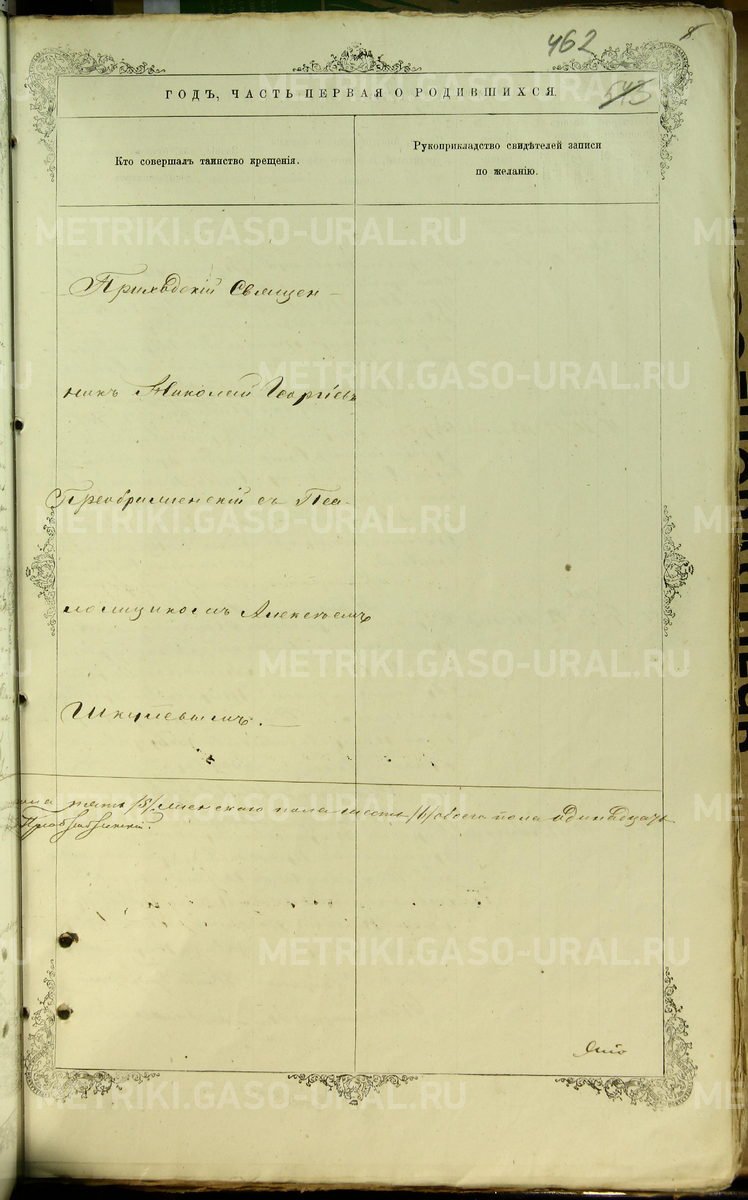 462
8
543
ГОДЪ, ЧАСТЬ ПЕРВАЯ О РОДИВШИХСЯ.
Кто совершалъ таинство крещенія.
Рукоприкладство свидѣтелей записи
по желанію.
Приходскій Священ-
никъ Николай Георгіевъ
Преображенскій съ Пса-
ломщикомъ Алексѣемъ
Шкулевымъ.
пять /5/ женскаго пола шесть /6/ обоего пола одинадцать
METRIKI.GASO-URAL.RU